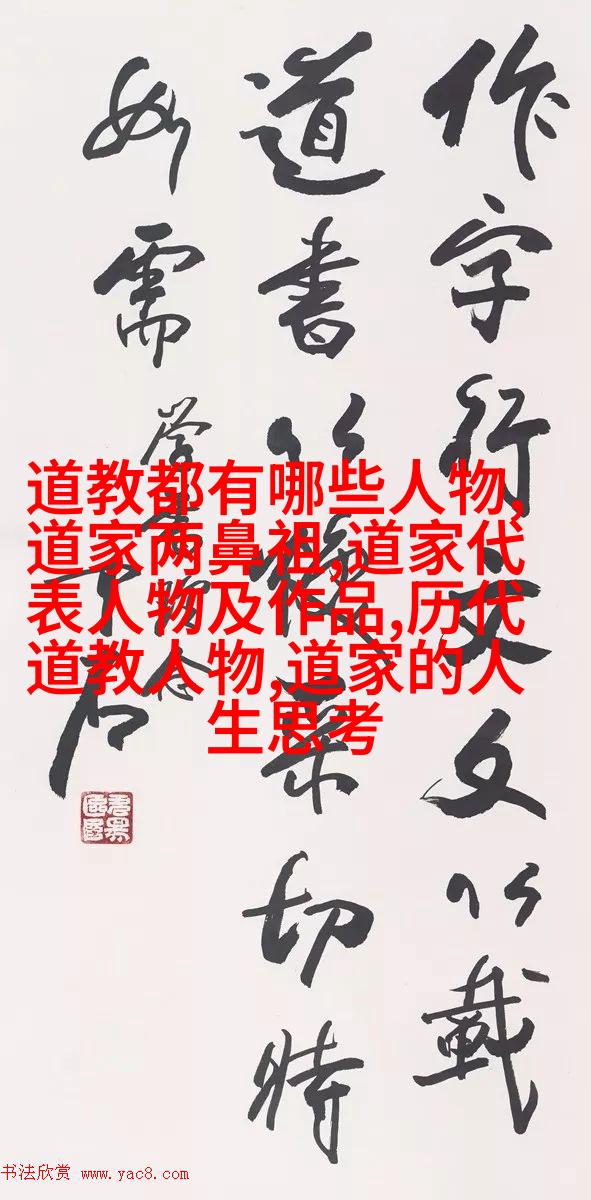 作字行文文以載
道書以切時
如需
道教都有哪些人物,
道家两鼻祖,道家代
表人物及作品,历代
道教人物,道家的人
生思考
书法欣赏 www.yac8.com